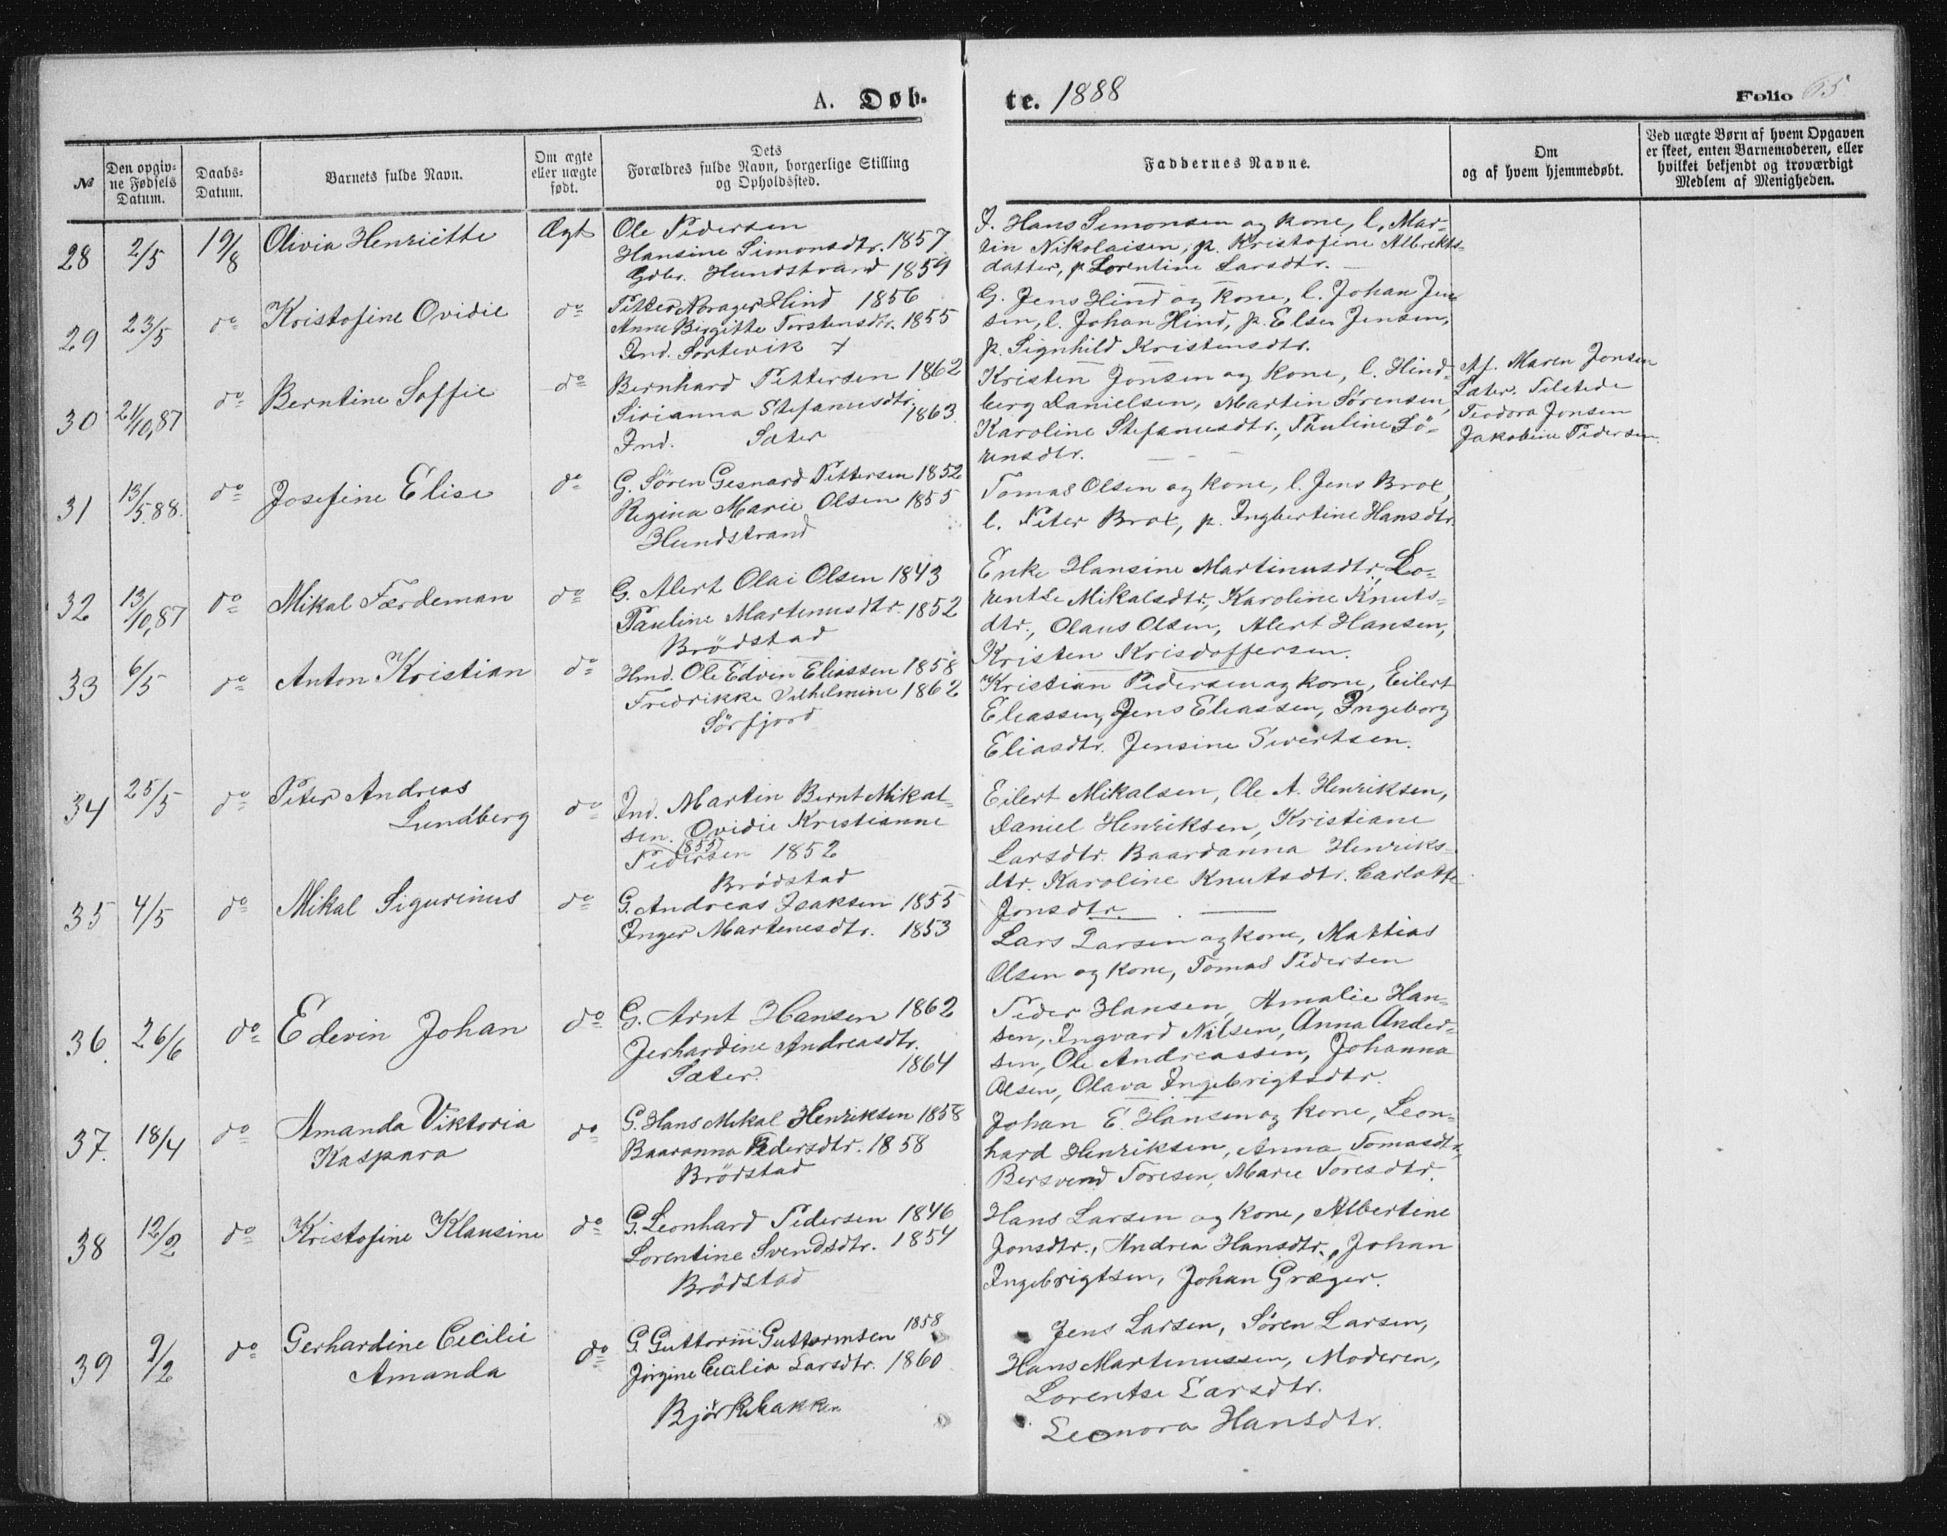 A. Døb-
te. 1888
Folio 65
№
Den opgiv-
ne Fødsels
Datum.
Daabs-
Datum.
Barnets fulde Navn.
Om ægte
eller uægte
født.
Dets
Forældres fulde Navn, borgerlige Stilling
og Opholdssted.
Faddernes Navne.
Om
og af hvem hjemmedøbt.
Ved uægte Børn af hvem Opgaven
er skeet, enten Barnemoderen, eller
hvilket bekjendt og troværdigt
Medlem af Menigheden.
28 2/5 19/8 Olivia Henriette Ægt
Ole Pedersen
Hansine Simonsdtr. 1857
Gdbr. Hundstrand 1859
I. Hans Simonsen og kone, l. Mar-
tin Nikolaisen, p. Kristofine Albrekts-
datter, p. Lorentine Larsdtr.
29 23/5 do Kristofine Ovidie do
Petter Norager Hind 1856
Anne Birgitte Torstensdtr. 1855
Ind. Sortevik
G. Jens Hind og kone, l. Johan Jen-
sen, l. Johan Hind, p. Elsen Jensen,
p. Signhild Kristensdtr.
30 21/10,87 do Berntine Soffie do
Bernhard Pettersen 1862
Sirianna Stefanusdtr. 1863.
Ind. Sæter
Kristen Jonsen og kone, l. Hind-
berg Danielsen, Martin Sørensen,
Karoline Stefanusdtr., Pauline Sö-
rensdtr.
Af. Maren Jonsen
Sæter. Tilstede
Teodora Jonsen
Jakobine Pedersen.
31 13/5.88. do Josefine Elise do
G. Sören Gesnard Pettersen 1852
Regina Marie Olsen 1855
Hundstrand
Tomas Olsen og kone, l. Jens Brox,
l. Peter Brox, p. Ingbertine Hansdtr.
32 13/10,87 do Mikal Færdeman do
G. Alert Olai Olsen 1843
Pauline Martenusdtr. 1852
Brödstad
Enke Hansine Martinusdtr., Lo-
rentse Mikalsdtr., Karoline Knuts-
dtr., Olaus Olsen, Alert Hansen,
Kristen Krisdoffersen.
33 6/5 do Anton Kristian do
Hmd. Ole Edvin Eliassen 1858
Fredrikke Vilhelmine 1862
Sörfjord
Kristian Pedersen og kone, Eilert
Eliassen, Jens Eliassen, Ingeborg
Eliasdtr. Jensine Sivertsen.
34 25/5 do Peter Andreas
Lundberg do
Ind. Martin Bernt Mikal-
sen. Ovidie Kristianne
1855
Pedersen 1852
Brödstad
Eilert Mikalsen, Ole A. Henriksen,
Daniel Henriksen, Kristiane
Larsdtr. Baardanna Henriks-
dtr. Karoline Knutsdtr. Carlotte
Jonsdtr.
35 4/5 do Mikal Sigurinus do
G. Andreas Isaksen 1855
Inger Martenesdtr. 1853
Lars Larsen og kone, Mattias
Olsen og kone, Tomas Pedersen
36. 26/6 do Edevin Johan do
G. Arnt Hansen 1862
Jerhardine Andreasdtr.
Sæter. 1864
Peder Hansen, Amalie Han-
sen, Ingvard Nilsen, Anna Ander-
sen, Ole Andreassen, Johanna
Olsen, Olava Ingebrigtsdtr.
37. 18/4 do Amanda Viktoria
Kaspara do
G. Hans Mikal Henriksen 1858
Baaranna Pedersdtr. 1858
Brödstad
Johan E. Hansen og kone, Leon-
hard Henriksen, Anna Tomasdtr,
Bersvend Toresen, Marie Toresdtr.
38 12/2 do Kristofine Klausine do
G. Leonhard Pedersen 1846
Lorentine Svendsdtr. 1854
Brödstad
Hans Larsen og kone, Albertine
Jonsdtr., Andrea Hansdtr., Johan
Ingebrigtsen, Johan Græger.
39 9/2 do Gerhardine Cecilie
Amanda do
G. Guttorm Guttormsen 1858
Jörgine Cecilia Larsdtr. 1860
Björkebakken
Jens Larsen, Sören Larsen,
Hans Martinussen, Moderen,
Lorentse Larsdtr.
Leonora Hansdtr.